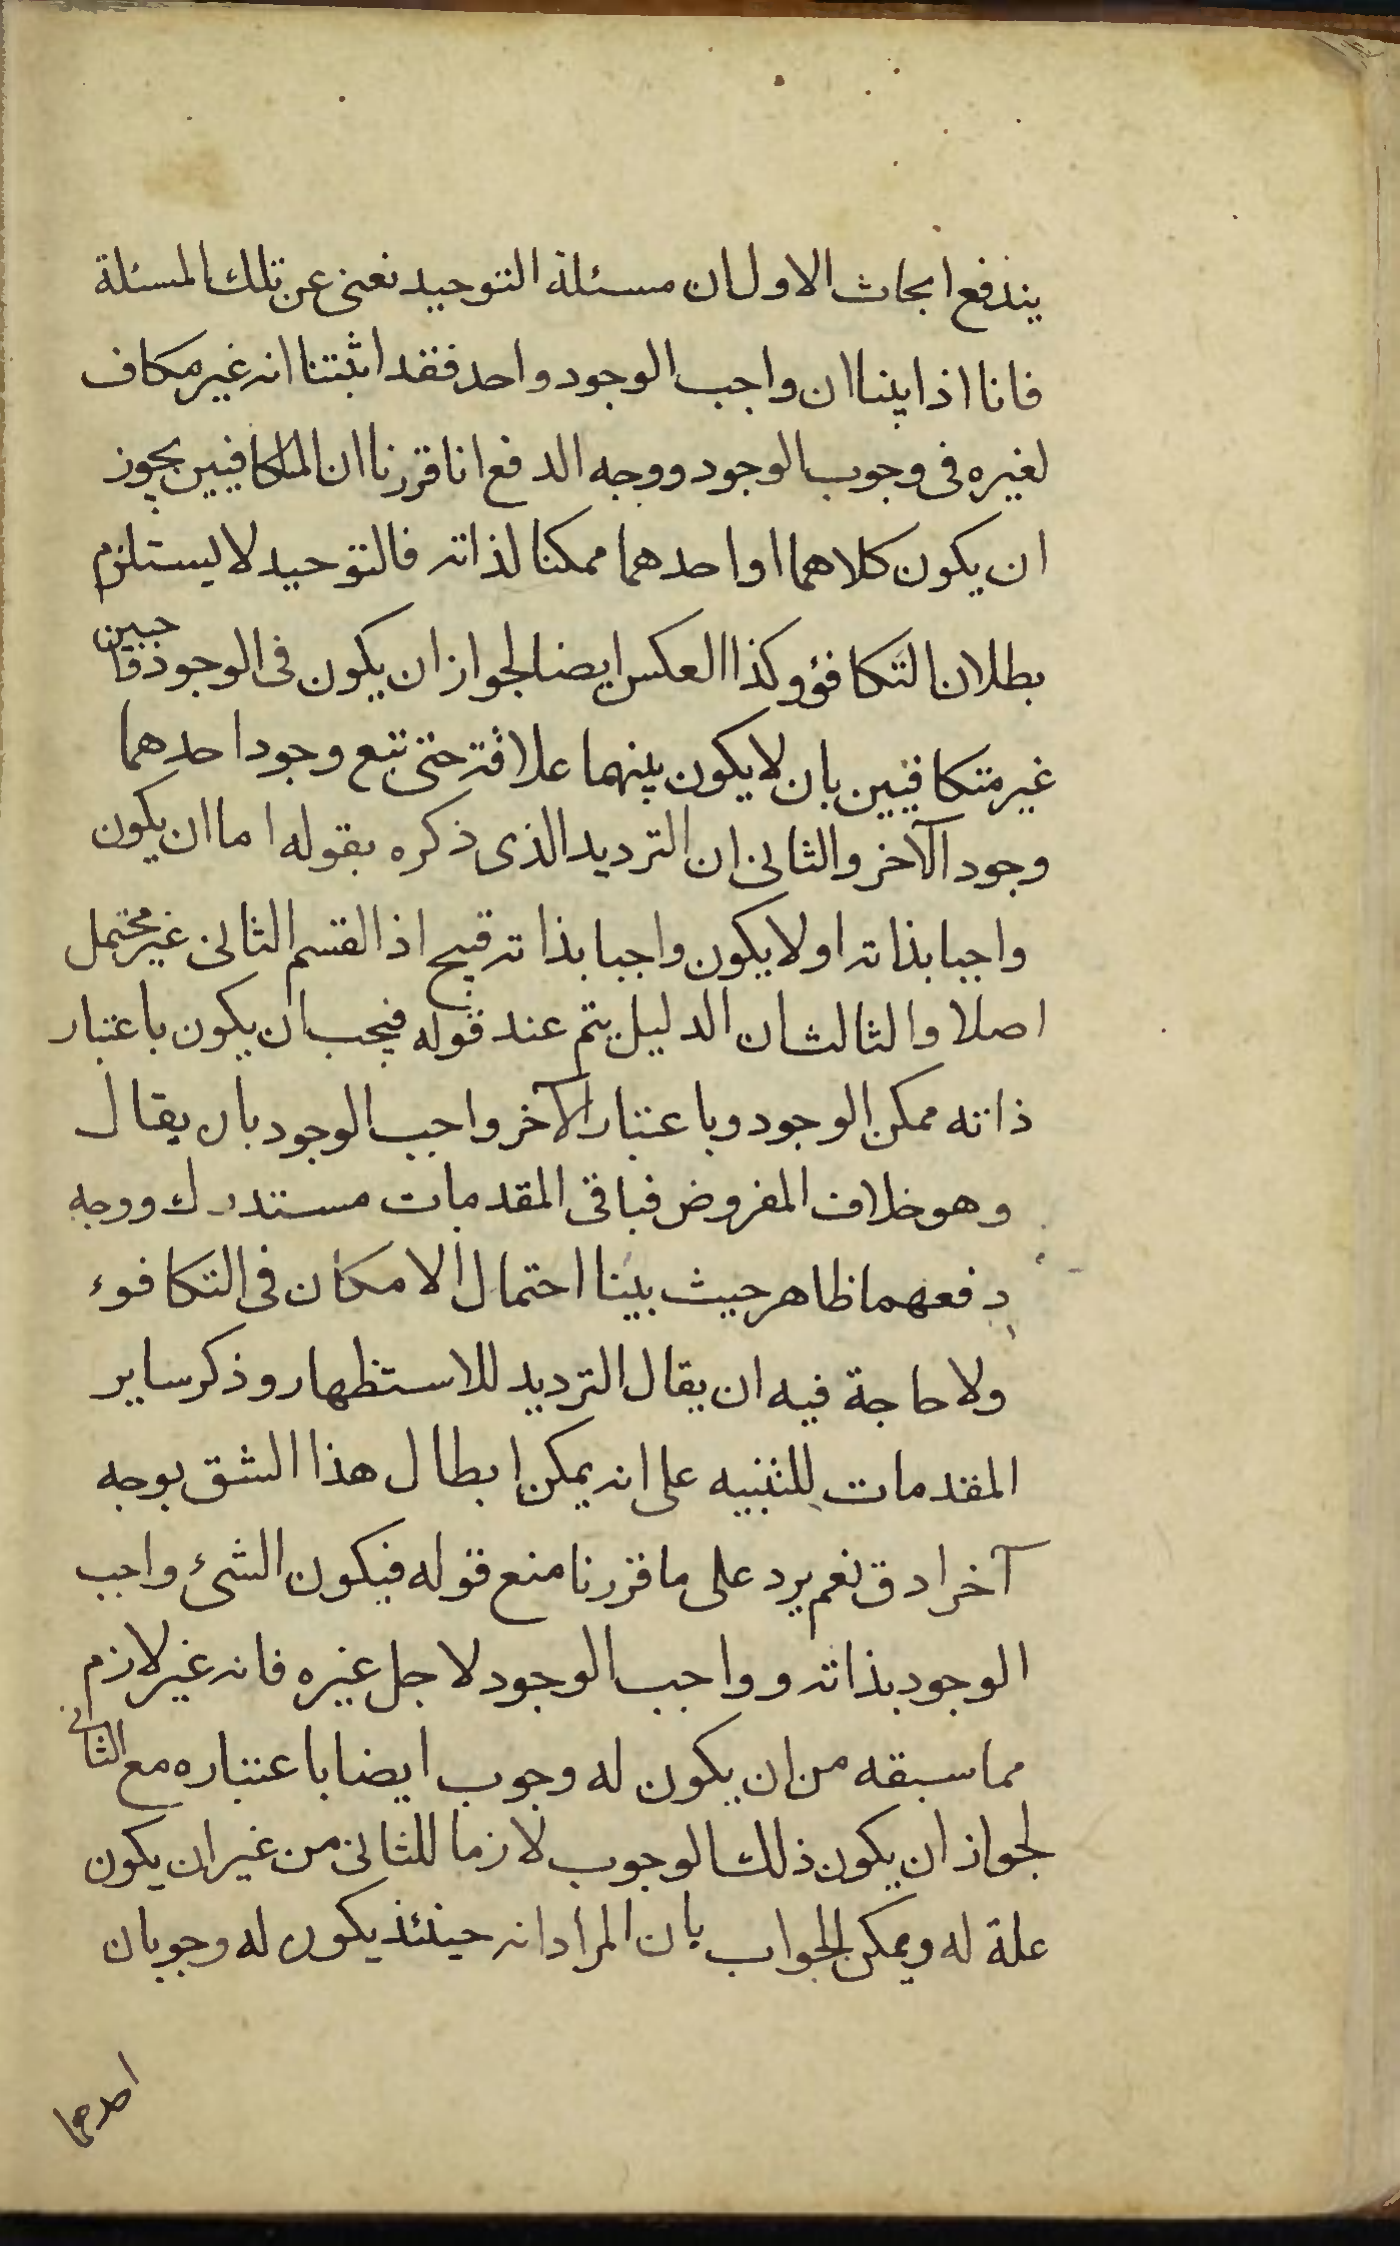 يندفع ابحاث الاول ان مسئلة التوحيد تغنى عن تلك المسئلة
فانا اذا بينا ان واجب الوجود واحد فقد اثبتنا انه غير مكاف
لغيره فى وجوب الوجود ووجه الدفع انا قررنا ان المتكافيين يجوز
ان يكون كلاهما او احدهما ممكنا لذاته فالتوحيد لا يستلزم
بطلان التكافؤ وكذا العكس ايضا لجواز ان يكون فى الوجود واجبين
غير متكافيين بان لا يكون بينهما علاقة حتى تتبع وجود احدهما
وجود الآخر والثانى ان الترديد الذى ذكره بقوله اما ان يكون
واجبا بذاته او لا يكون واجبا بذاته قبيح اذ القسم الثانى غير محتمل
اصلا والثالث ان الدليل يتم عند قوله فيجب ان يكون باعتبار
ذاته ممكن الوجود وباعتبار الآخر واجب الوجود بان يقال
وهو خلاف المفروض فباقى المقدمات مستدرك ووجه
دفعهما ظاهر حيث بينا احتمال الامكان فى التكافوء
ولا حاجة فيه ان يقال الترديد للاستظهار وذكر ساير
المقدمات للتنبيه على انه يمكن ابطال هذا الشق بوجه
آخر ادق نعم يرد على ما قررنا منع قوله فيكون الشئ واجب
الوجود بذاته وواجب الوجود لاجل غيره فانه غير لازم
مما سبقه من ان يكون له وجوب ايضا باعتباره مع الثانى
لجواز ان يكون ذلك الوجوب لازما للثانى من غير ان يكون
علة له ويمكن الجواب بان المراد انه حينئذ يكون له وجوبان
احدهما